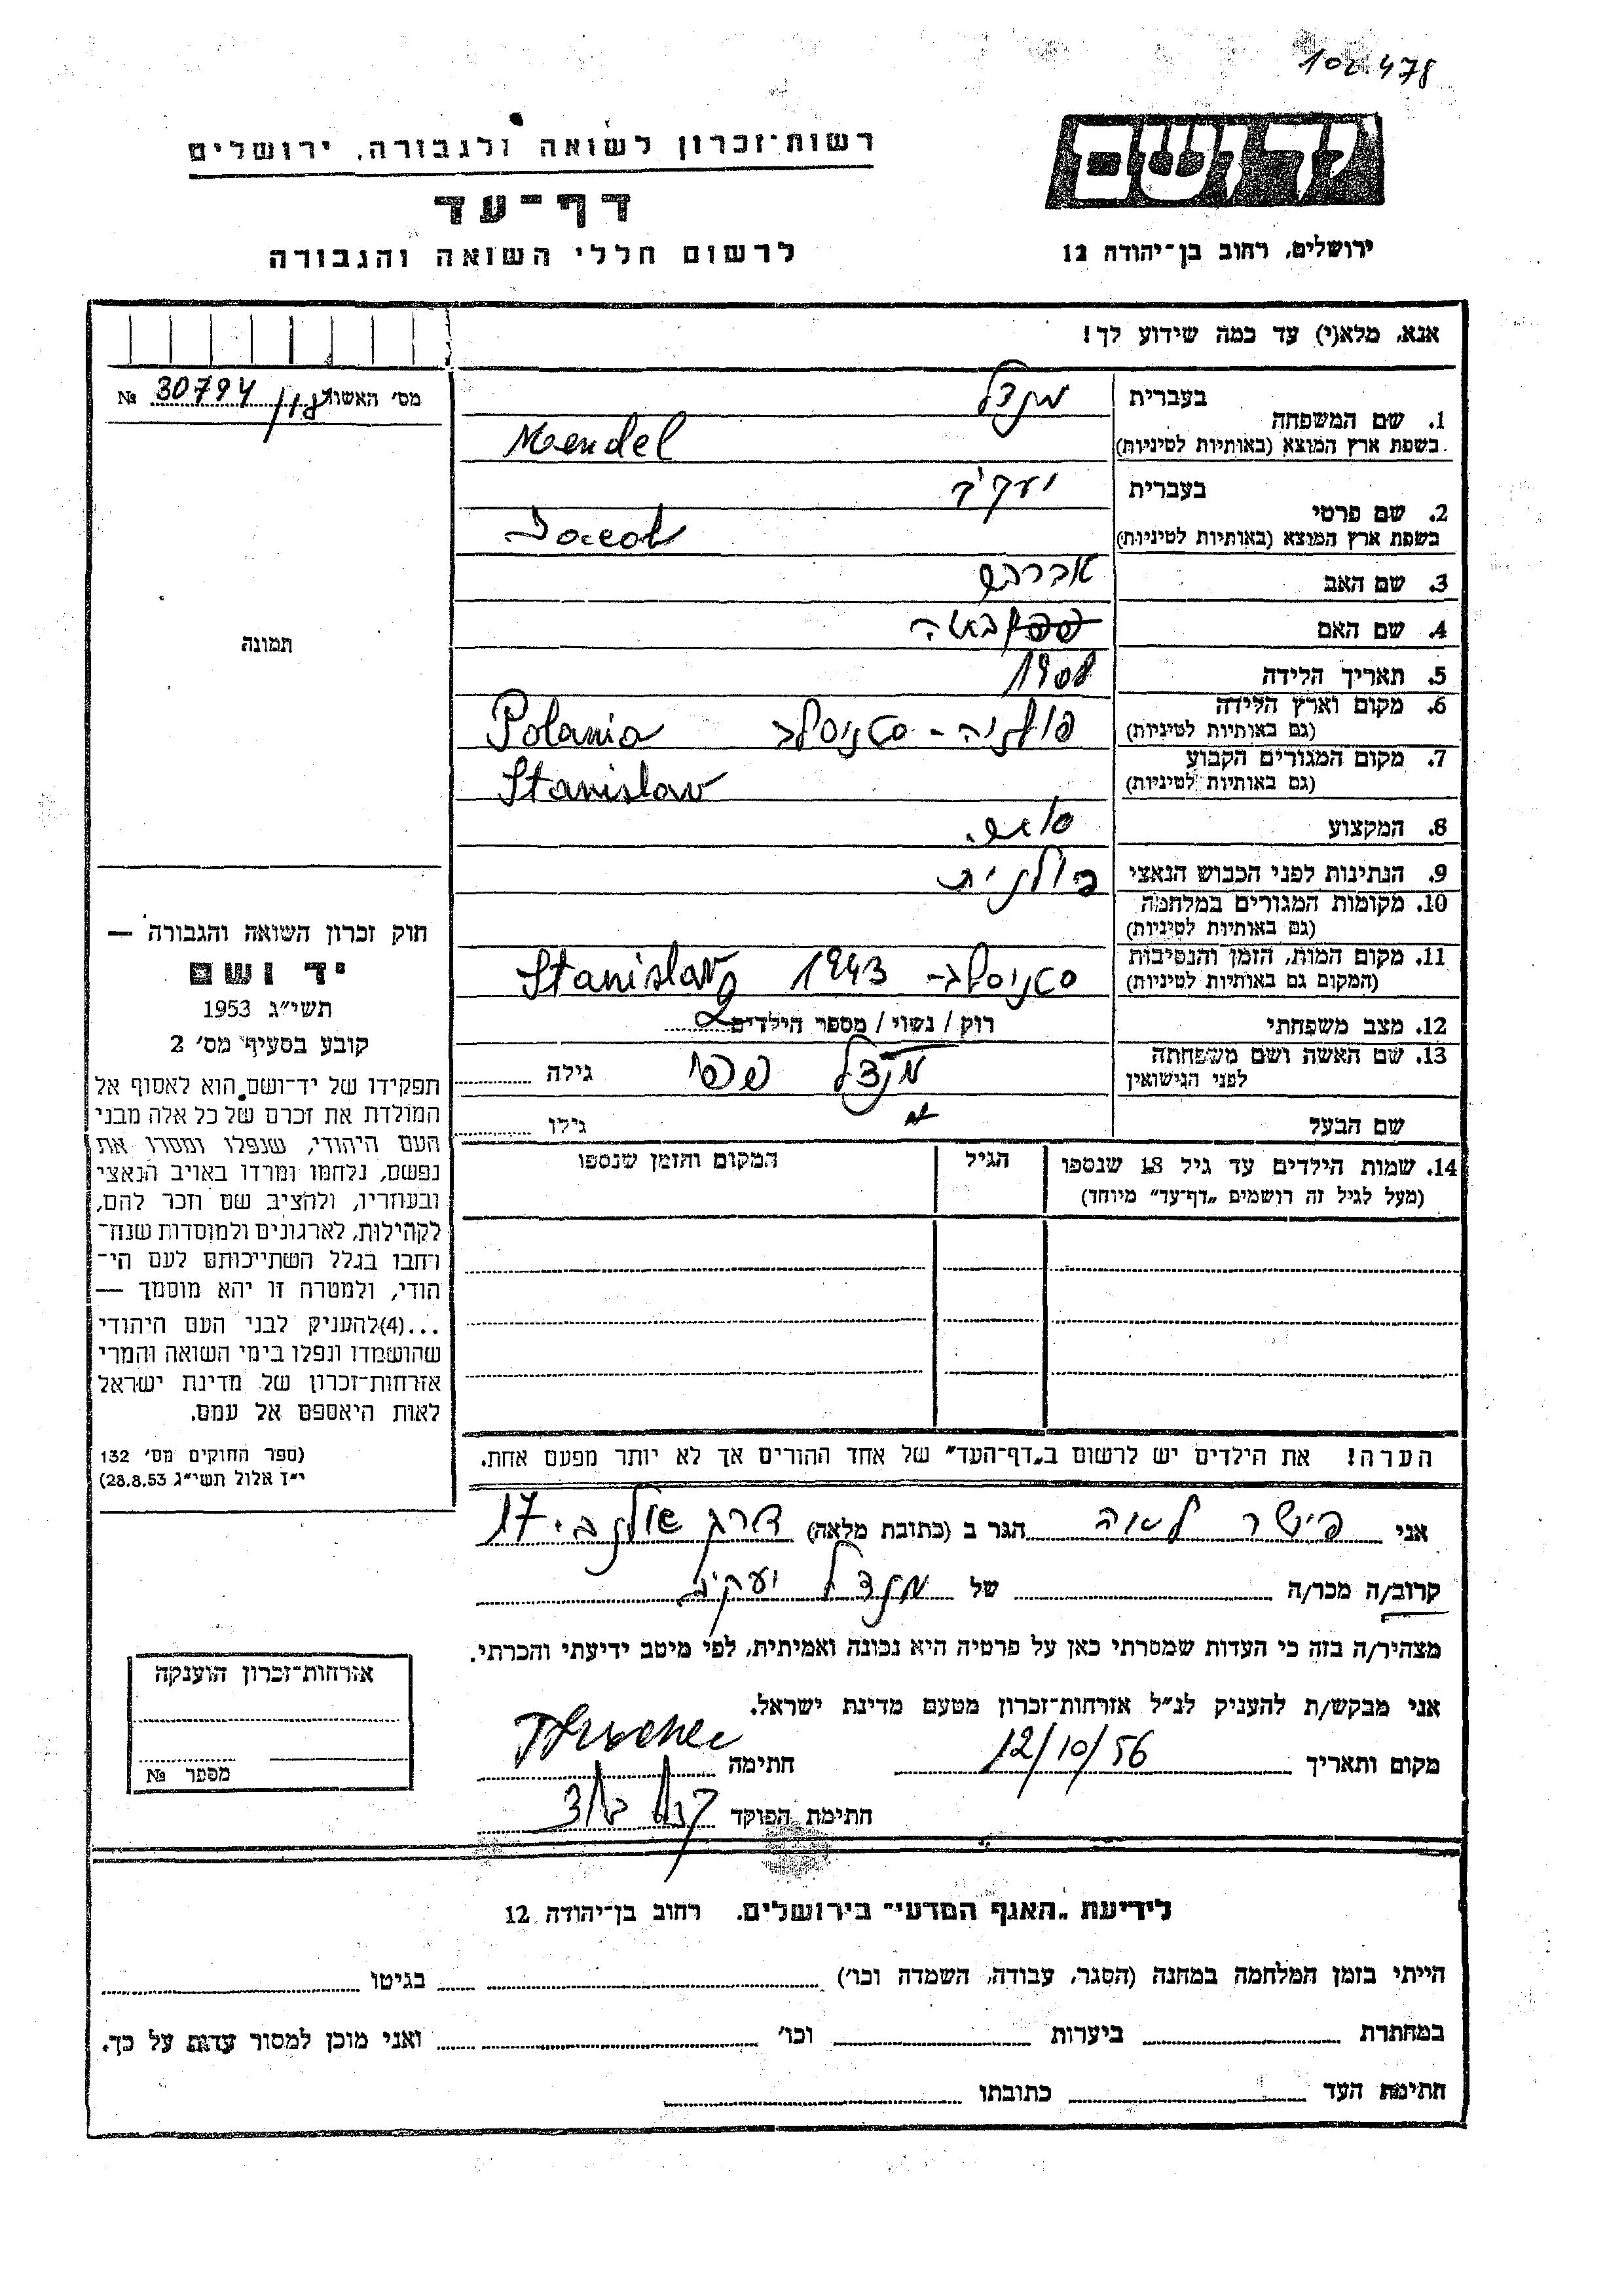 102.478
רשות־זכרון לשואה ולגבורה, ירושלים
דף־עד
לרשום חללי השואה והגבורה
יד ושם
ירושלים, רחוב בן־יהודה 12
אנא, מלא(י) עד כמה שידוע לך!
מס׳ האשור 30794 №
תמונה
1. שם המשפחה בעברית מנדל
בשפת ארץ המוצא (באותיות לטיניות) Mendel
2. שם פרטי בעברית יעקב
בשפת ארץ המוצא (באותיות לטיניות)
3. שם האב אברהם
4. שם האם
5. תאריך הלידה 1908
6. מקום וארץ הלידה (גם באותיות לטיניות) פולניה - סטניסלב Polania
7. מקום המגורים הקבוע (גם באותיות לטיניות) Stanislav
8. המקצוע
9. הנתינות לפני הכבוש הנאצי פולנית
10. מקומות המגורים במלחמה (גם באותיות לטיניות)
11. מקום המות, הזמן והנסיבות (המקום גם באותיות לטיניות) סטניסלב- 1943 Stanislav
12. מצב משפחתי רוק / נשוי / מספר הילדים 2
13. שם האשה ושם משפחתה לפני הנישואין מנדל גילה
שם הבעל גילו
14. שמות הילדים עד גיל 18 שנספו הגיל המקום והזמן שנספו
(מעל לגיל זה רושמים „דף־עד” מיוחד)
הערה! את הילדים יש לרשום ב„דף־העד” של אחד ההורים אך לא יותר מפעם אחת.
חוק זכרון השואה והגבורה —
יד ושם
תשי״ג 1953
קובע בסעיף מס׳ 2
תפקידו של יד־ושם הוא לאסוף אל
המולדת את זכרם של כל אלה מבני
העם היהודי, שנפלו ומסרו את
נפשם, נלחמו ומרדו באויב הנאצי
ובעוזריו, ולהציב שם וזכר להם,
לקהילות, לארגונים ולמוסדות שנח־
רחבו בגלל השתייכותם לעם הי־
הודי, ולמטרה זו יהא מוסמך —
...(4)להעניק לבני העם היהודי
שהושמדו ונפלו בימי השואה והמרי
אזרחות־זכרון של מדינת ישראל
לאות היאספם אל עמם.
(ספר החוקים מס׳ 132
י״ז אלול תשי״ג 28.8.53)
אני פישר לאה הגר ב (כתובת מלאה) 17
קרוב/ה מכר/ה של מנדל יעקב
מצהיר/ה בזה כי העדות שמסרתי כאן על פרטיה היא נכונה ואמיתית, לפי מיטב ידיעתי והכרתי.
אני מבקש/ת להעניק לנ״ל אזרחות־זכרון מטעם מדינת ישראל.
מקום ותאריך 12/10/56 חתימה
חתימת הפוקד
אזרחות־זכרון הוענקה
מספר №
לידיעת „האגף המדעי” בירושלים, רחוב בן־יהודה 12
הייתי בזמן המלחמה במחנה (הסגר, עבודה, השמדה וכו׳) בגיטו
במחתרת ביערות וכו׳ ואני מוכן למסור עדות על כך.
חתימת העד כתובתו